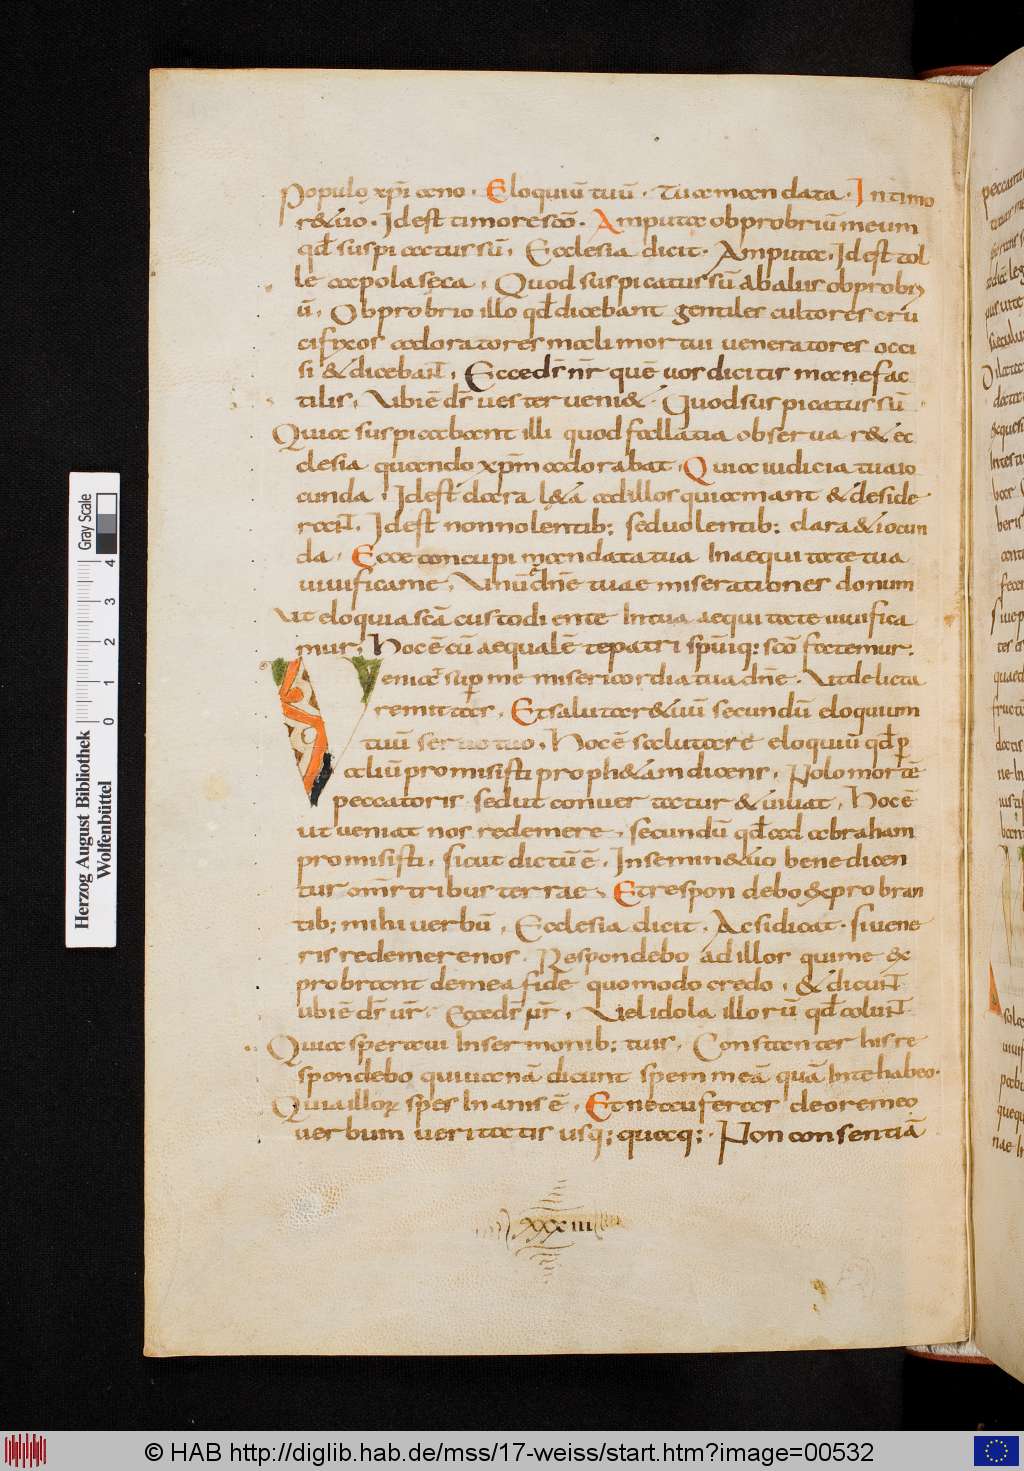 Populo xpī ano. Eloquiū tuū. Tua man data. In timo
r& uo. Id est timore scō. Amputa obprobriū meum
qđ suspi catus sū. Ecclesia dicit. Amputa. Id est tol
le
Quod suspicatus sū ab alus obprobri
ū. Obprobrio illo qđ dicebant gentiles cultores cru
cifixos adoratores mali mortui veneratores occi
si & diceban̄t. Ecce dr̄ nr̄ quē vos dicitis mane fac
tilis. Ubi ē dr̄ vester veni&. Quod suspicatus sū
Quia suspicabant illi quod fallatia observa r& ec
clesia quando xpm̄ adorabat. Quia iudicia tua io
cunda. Id est dara l& a ad illos qui amant & deside
ran̄t. Id est non nolentib; sed volentib; clara & iocun
da. Ecce concupi mandata tua In aequi tate tua
vivifica me. Unū dn̄e tuae miserationes donum
Ut eloquia scā custodi ente In tua aequi tate vivifica
mur. Hoc ē cū aequalē te patri spūiq: scō fatemur.
Veniat sup me misericordia tua dn̄e. Ut delicta
remittas. Et salutare& uū secundū eloquium
tuū servo tuo. Hoc ē salutare eloquiū qđ p
aliū promisisti proph&am dicens. Nolo mortē
peccatoris sed ut conver tatur & vivat. Hoc ē
ut veniat nos redemere. secundū qđ ad abraham
promisisti. sicut dictū ē. In semin& uo benedicen
tur om̄s tribus terrae. Et respon debo exprobran
tib; mihi verbū. Ecclesia dicit. Ac si dicat. si vene
ris redemere nos. Respondebo ad illos qui me ex
probrant de mea fide quomodo credo. & dicun̄t
ubi ē dr̄ ur̄. Ecce dr̄ ur̄. Vel idola illorū qđ colun̄t
Quia speravi In sermonib; tuis. Constanter his re
spondebo qui vanā dicunt spem meā quā In te habeo.
Quia illorum spes Inanis ē. Et ne auferas de ore meo
verbum veritatis usq; quaq;. Non consentiā
XXXIIII
Herzog August Bibliothek
Wolfenbüttel
Gray Scale
0 1 2 3 4
© HAB http://diglib.hab.de/mss/17-weiss/start.htm?image=00532